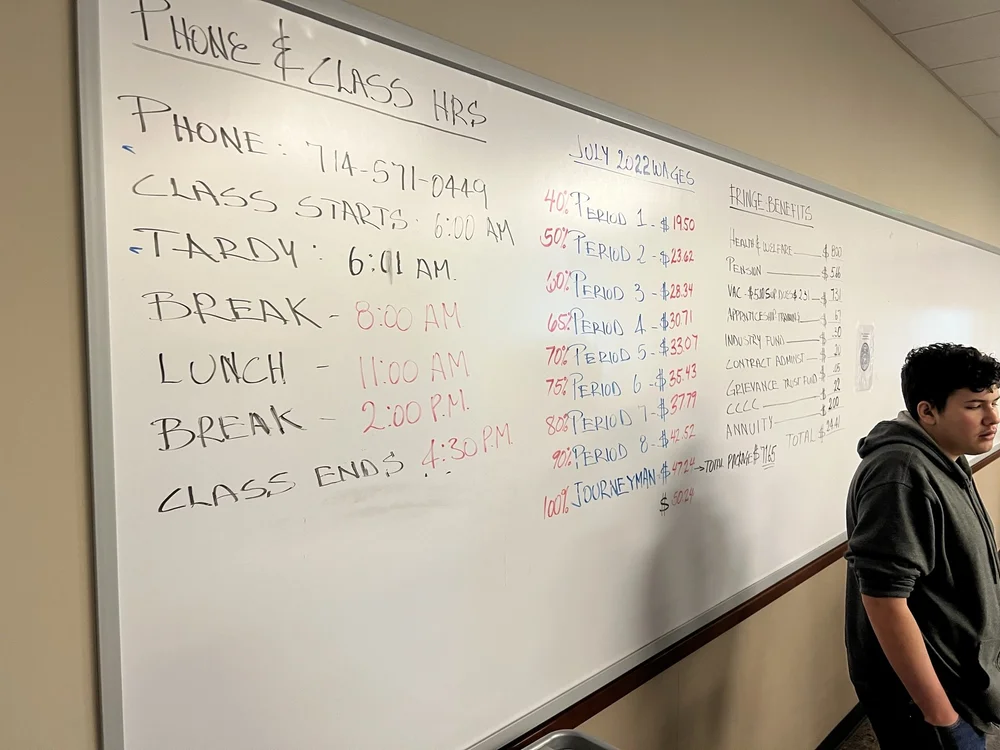 PHONE & CLASS HRS
PHONE: 714-571-0449
CLASS STARTS: 6:00 AM
TARDY: 6:01 AM.
BREAK - 8:00 AM
LUNCH - 11:00 AM
BREAK - 2:00 P.M.
CLASS ENDS 4:30 P.M.
JULY 2022 WAGES
40% PERIOD 1 - $19.50
50% PERIOD 2 - $23.62
60% PERIOD 3 - $28.34
65% PERIOD 4 - $30.71
70% PERIOD 5 - $33.07
75% PERIOD 6 - $35.43
80% PERIOD 7 - $37.79
90% PERIOD 8 - $42.52
100% JOURNEYMAN $47.24 → TOTAL PACKAGE $71.65
$50.24
FRINGE BENEFITS
HEALTH & WELFARE $8.00
PENSION $
VAC
INDUSTRY FUND
CONTRACT ADMINIST
GRIEVANCE TRUST FUND
CCCC
ANNUITY 2.00
TOTAL $24.41